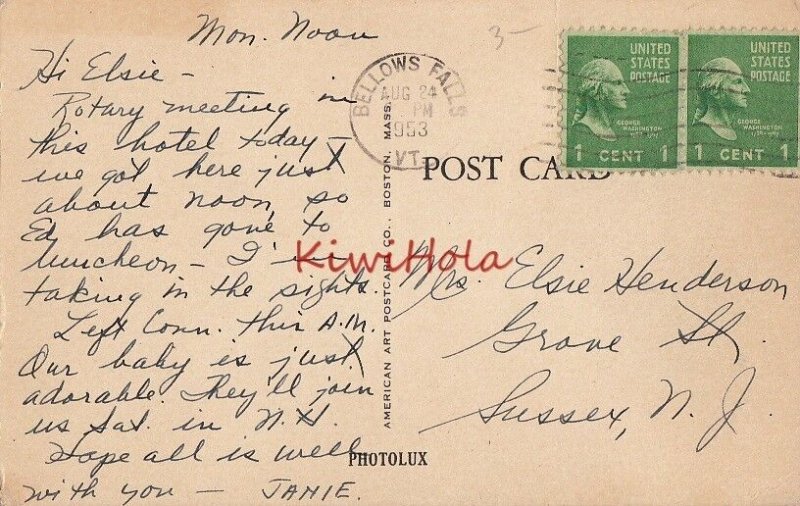 Mon. Noon
3-
Hi Elsie -
Rotary meeting in
this hotel today -
we got here just
about noon, so
Ed has gone to
luncheon - I'm
taking in the sights.
Left Conn. this A.M.
Our baby is just
adorable. They'll join
us Sat. in N.H.
Hope all is well
with you - JANIE.
BELLOWS FALLS
AUG 24
PM
1953
VT.
UNITED
STATES
POSTAGE
GEORGE
WASHINGTON
1 CENT 1
UNITED
STATES
POSTAGE
GEORGE
WASHINGTON
1 CENT 1
POST CARD
AMERICAN ART POSTCARD CO., BOSTON, MASS.
KiwiHola
Mrs. Elsie Henderson
Grove St.
Sussex, N.J.
PHOTOLUX